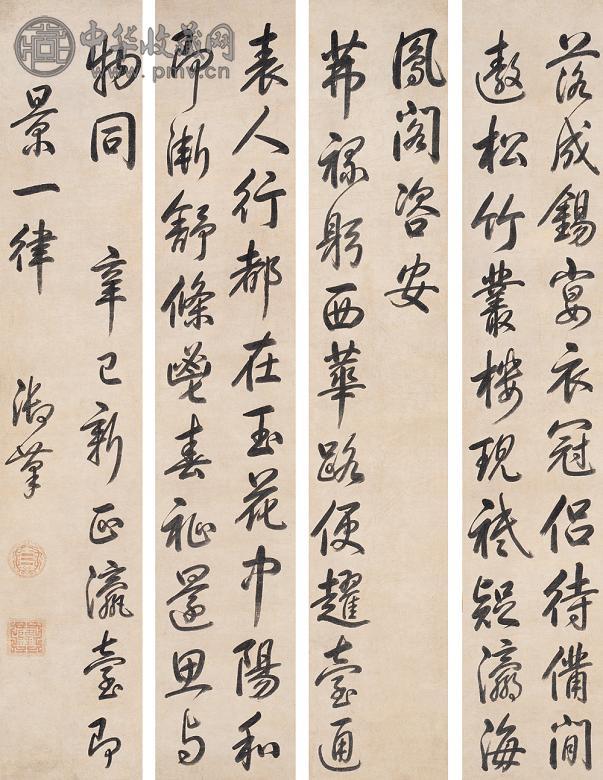 落成錫宴衣冠侶待備閒
遨松竹叢樓現祗疑瀛海
鳳閣咨安
茀祿躬西華路便趯臺通
表人行都在玉花中陽和
節漸舒條鬯春祉還思與
物同 辛巳新正瀛臺即
景一律 御筆
中华收藏网
www.pmv.cn